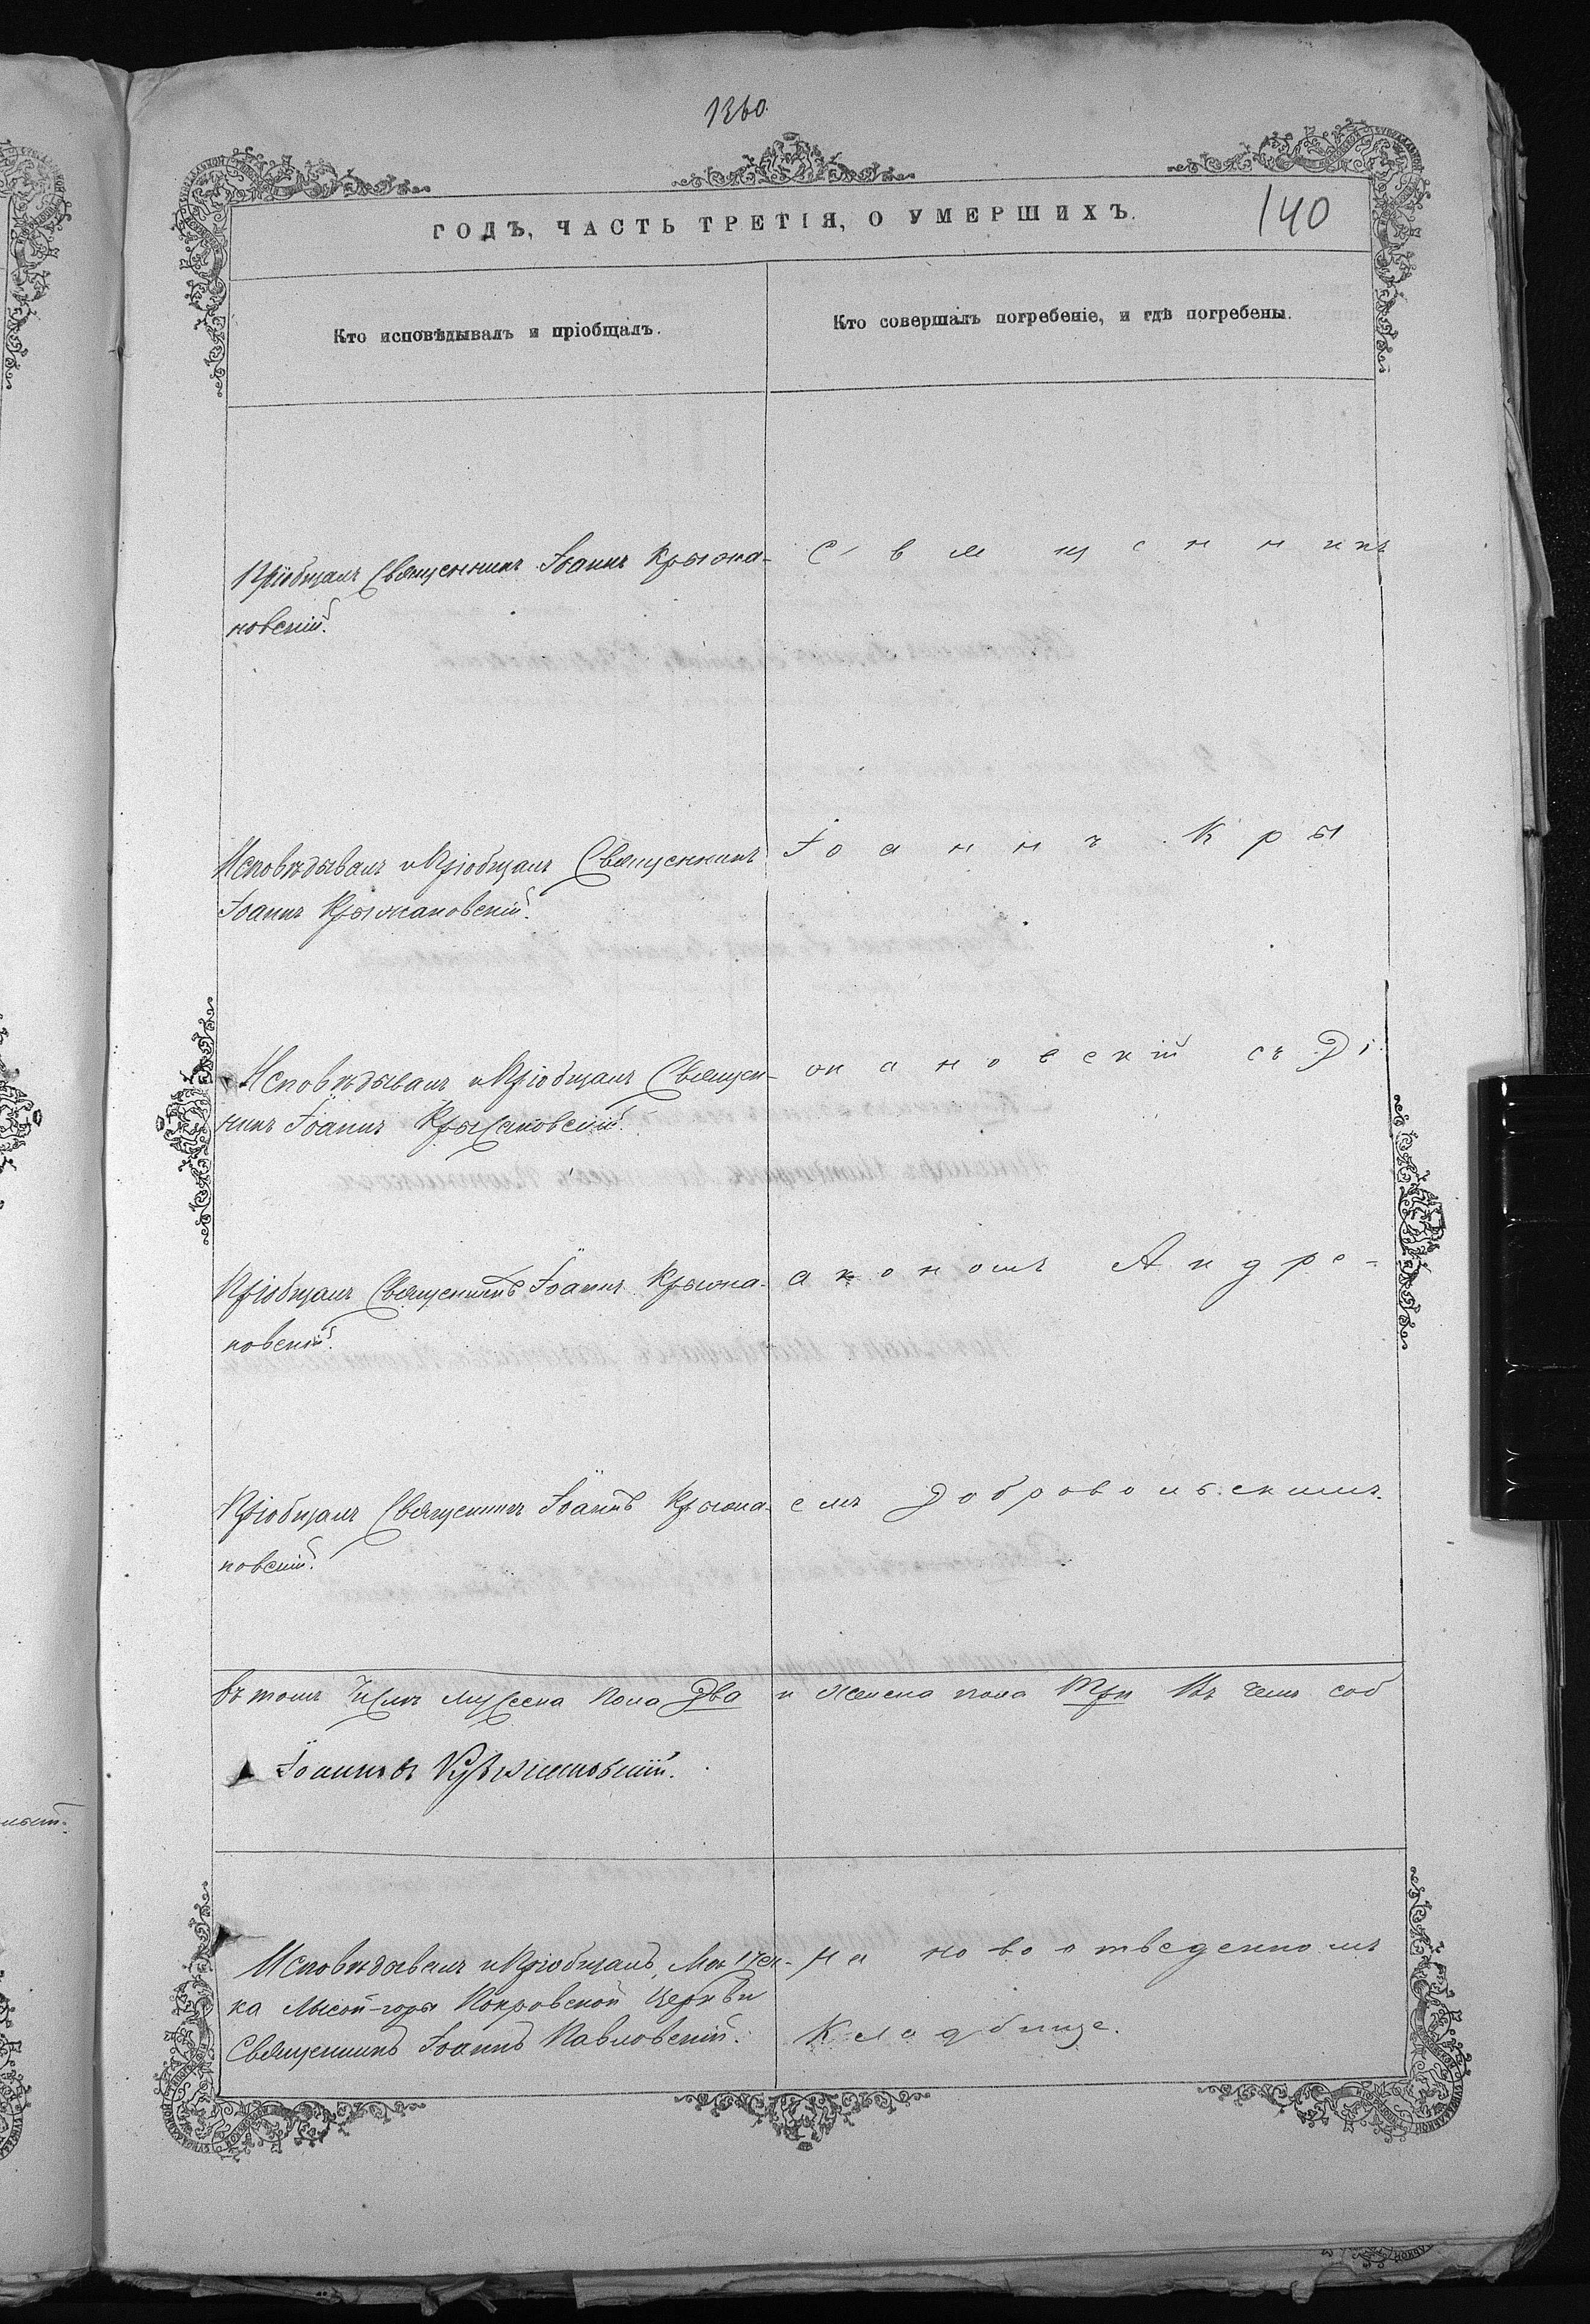 1360.
ГОДЪ, ЧАСТЬ ТРЕТІЯ, О УМЕРШИХЪ.
140
Кто исповѣдывалъ и пріобщалъ.
Кто совершалъ погребеніе, и гдѣ погребены.
Пріобщалъ Священникъ Іоаннъ Крыжа-
новскій.
Священникъ
Исповѣдывалъ и Пріобщалъ Священникъ
Іоаннъ Крыжановскій.
Іоаннъ Кры
Исповѣдывалъ и Пріобщалъ Священ-
никъ Іоаннъ Крыжановскій.
жановскій съ Ді
Пріобщалъ Священникъ Іоаннъ Крыжа-
новскій.
акономъ Андре-
Пріобщалъ Священникъ Іоаннъ Крыжа-
новскій.
емъ Добровольскимъ.
въ томъ числѣ мужеска пола Два и женска пола Три Въ чемъ соб
Іоаннъ
Исповѣдывалъ и Пріобщалъ,
ка Лысой-горы Покровской Церкви
Священникъ Іоаннъ Павловскій.
На новоотведенномъ
Кладбище.